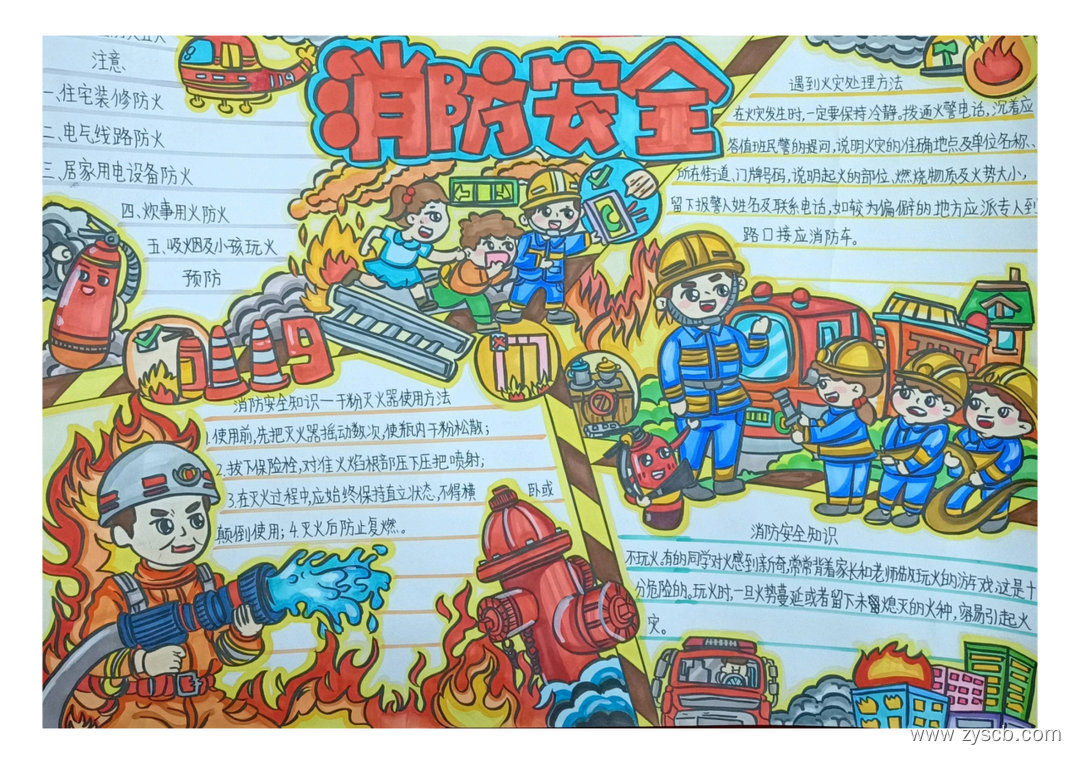 消防安全
注意
一、住宅装修防火
二、电气线路防火
三、居家用电设备防火
四、炊事用火防火
五、吸烟及小孩玩火
预防
遇到火灾处理方法
在火灾发生时,一定要保持冷静。拨通火警电话,沉着应
答值班民警的提问,说明火灾的准确地点及单位名称、
所在街道、门牌号码,说明起火的部位、燃烧物质及火势大小,
留下报警人姓名及联系电话,如较为偏僻的地方应派专人到
路口接应消防车。
119
消防安全知识一干粉灭火器使用方法
1.使用前,先把灭火器摇动数次,使瓶内干粉松散;
2.拔下保险栓,对准火焰根部压下压把喷射;
3.在灭火过程中,应始终保持直立状态,不得横 卧或
颠倒使用;4.灭火后防止复燃。
消防安全知识
不玩火。有的同学对火感到新奇,常常背着家长和老师做玩火的游戏,这是十
分危险的。玩火时,一旦火势蔓延或者留下未熄灭的火种,容易引起火
灾。
www.zyscb.com